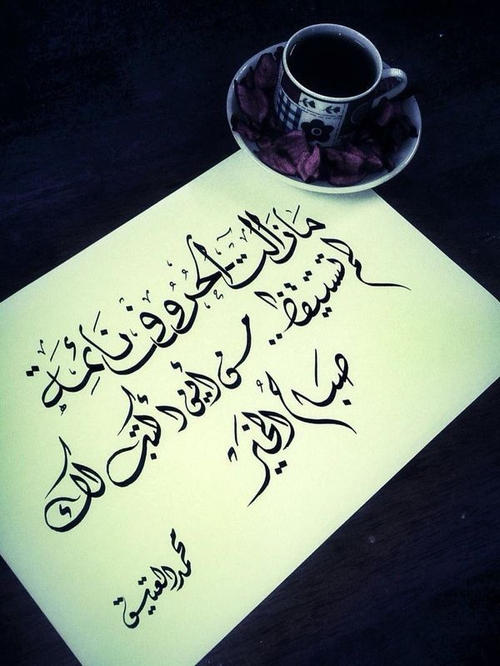 مَا زَالَتْ أَحْرُوفُ نَائِمَةً
لم تستيقظ..
من أين أكتب لك
صَبَاحُ الْخَيْر
محمد العتيق